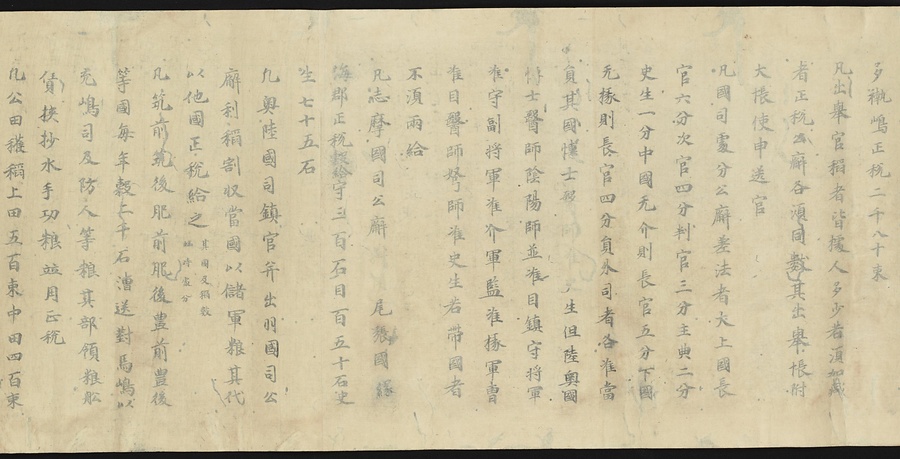 多褹嶋正税二千八十束
凡出擧官稻者皆據人多少若須加減
者正税公廨各須同數其出擧帳附
大帳使申送官
凡國司處分公廨差法者大上國長
官六分次官四分判官三分主典二分
史生一分中國无介則長官五分下國
无掾則長官四分員外司者各准當
員其國博士 生但陸奧國
博士醫師陰陽師並准目鎮守將軍
准守副將軍准介軍監准掾軍曹
准目醫師弩師准史生若帶國者
不須兩給
凡志摩國司公廨 尾張國
海郡正税 給守三百石目百五十石史
生七十五石
凡奧陸國司鎮官并出羽國司公
廨利稻割収當國以儲軍粮其代
以他國正税給之其國及稻數
凡筑前筑後肥前肥後豊前豊後
等國每年穀二千石漕送對馬嶋以
充嶋司及防人等粮其部領粮舩
賃挾抄水手功粮並用正税
凡公田穫稻上田五百束中田四百束